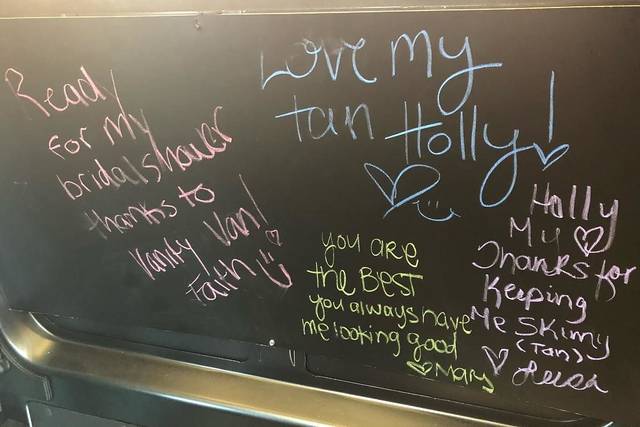 Ready
for my
bridal shower
thanks to
Vanity Van!
Faith
Love my
tan Holly!
you are
the BEST
you always have
me looking good
Mary
Holly
My
Thanks for
Keeping
Me Skimy
(Tan)